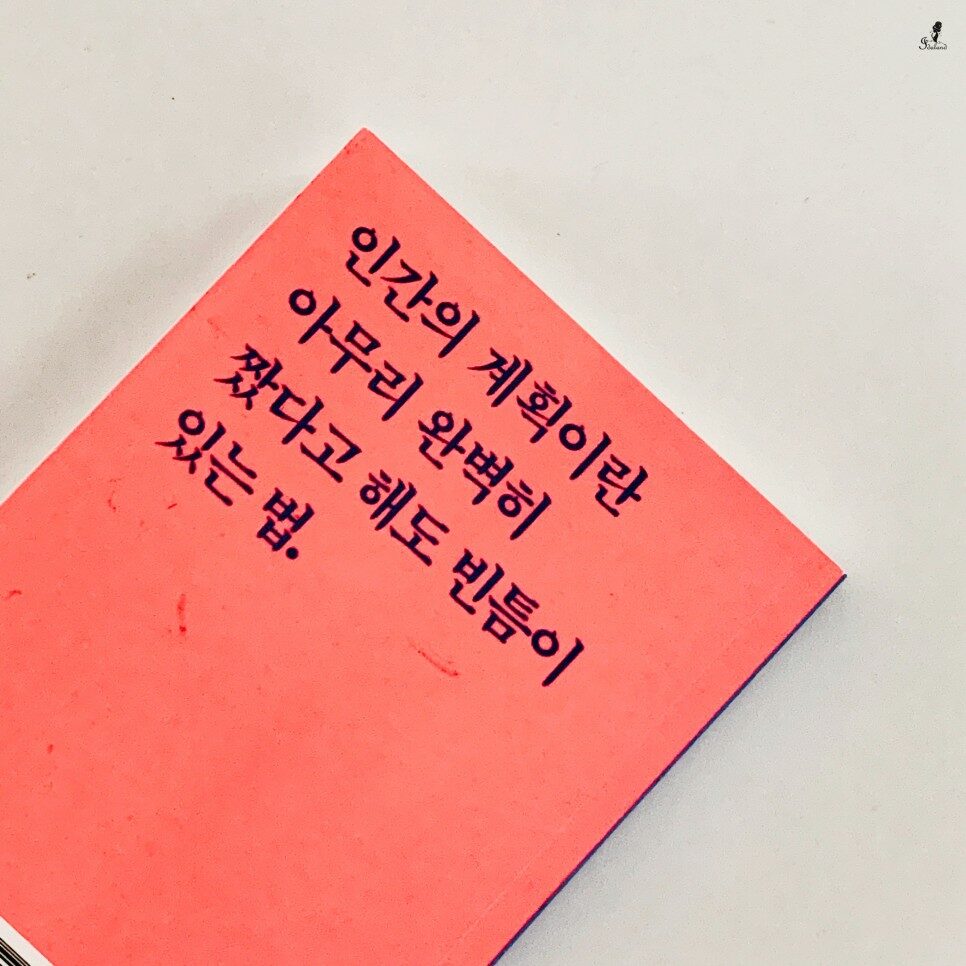 인간의 계획이란
아무리 완벽히
짰다고 해도 빈틈이
있는 법.